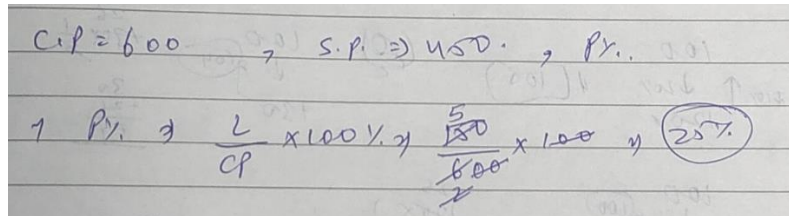 C.P = 600 , S.P. ⇒ 450. , P%.
1 P% ⇒ L/CP × 100% ⇒ 150/600 × 100 ⇒ 25%